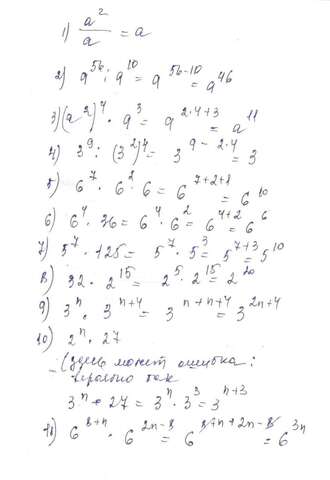 1) a²/a = a
2) a⁵⁶ : a¹⁰ = a⁵⁶⁻¹⁰ = a⁴⁶
3) (a²)⁴ · a³ = a²·⁴⁺³ = a¹¹
4) 3⁹ : (3²)⁴ = 3⁹⁻²·⁴ = 3
5) 6⁷ · 6² · 6 = 6⁷⁺²⁺¹ = 6¹⁰
6) 6⁴ · 36 = 6⁴ · 6² = 6⁴⁺² = 6⁶
7) 5⁷ · 125 = 5⁷ · 5³ = 5⁷⁺³ = 5¹⁰
8) 32 · 2¹⁵ = 2⁵ · 2¹⁵ = 2²⁰
9) 3ⁿ · 3ⁿ⁺⁴ = 3ⁿ⁺ⁿ⁺⁴ = 3²ⁿ⁺⁴
10) 2ⁿ · 27
(здесь может ошибка:
так
3ⁿ · 27 = 3ⁿ · 3³ = 3ⁿ⁺³
11) 6⁸⁺ⁿ · 6²ⁿ⁻⁸ = 6⁸⁺ⁿ⁺²ⁿ⁻⁸ = 6³ⁿ